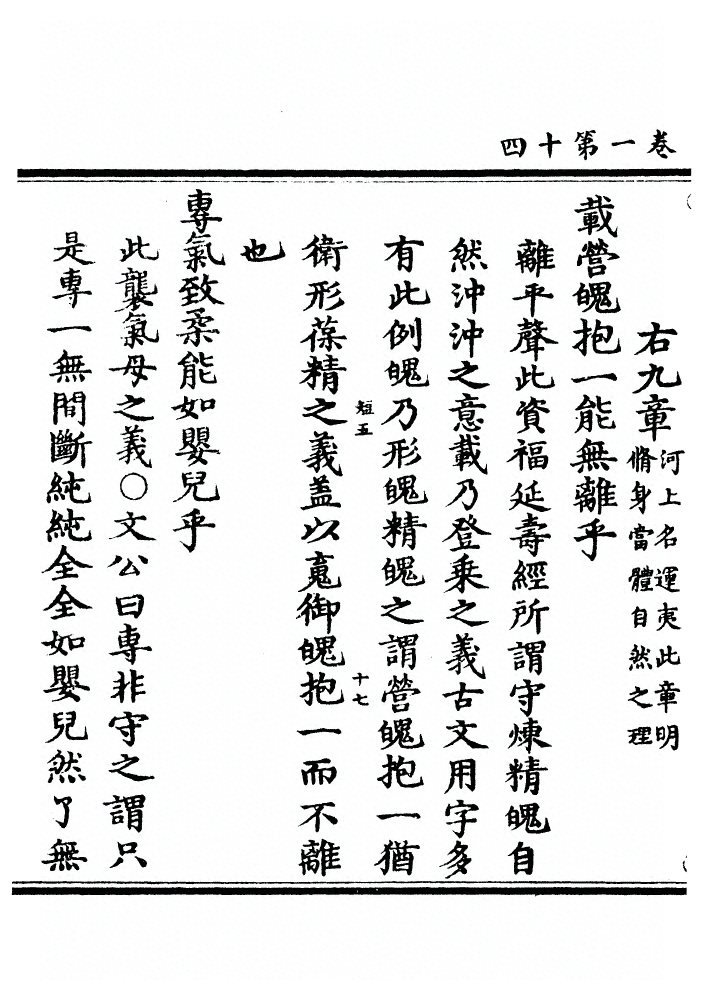 卷一第十四
右九章
河上名運夷此章明
脩身當體自然之理
載營魄抱一能無離乎
離平聲此資福延壽經所謂守煉精魄自
然沖沖之意載乃登乗之義古文用字多
有此例魄乃形魄精魄之謂營魄抱一猶
短五
十七
衛形葆精之義盖以䰟御魄抱一而不離
也
專氣致柔能如嬰兒乎
此襲氣母之義○文公曰專非守之謂只
是專一無間斷純純全全如嬰兒然了無